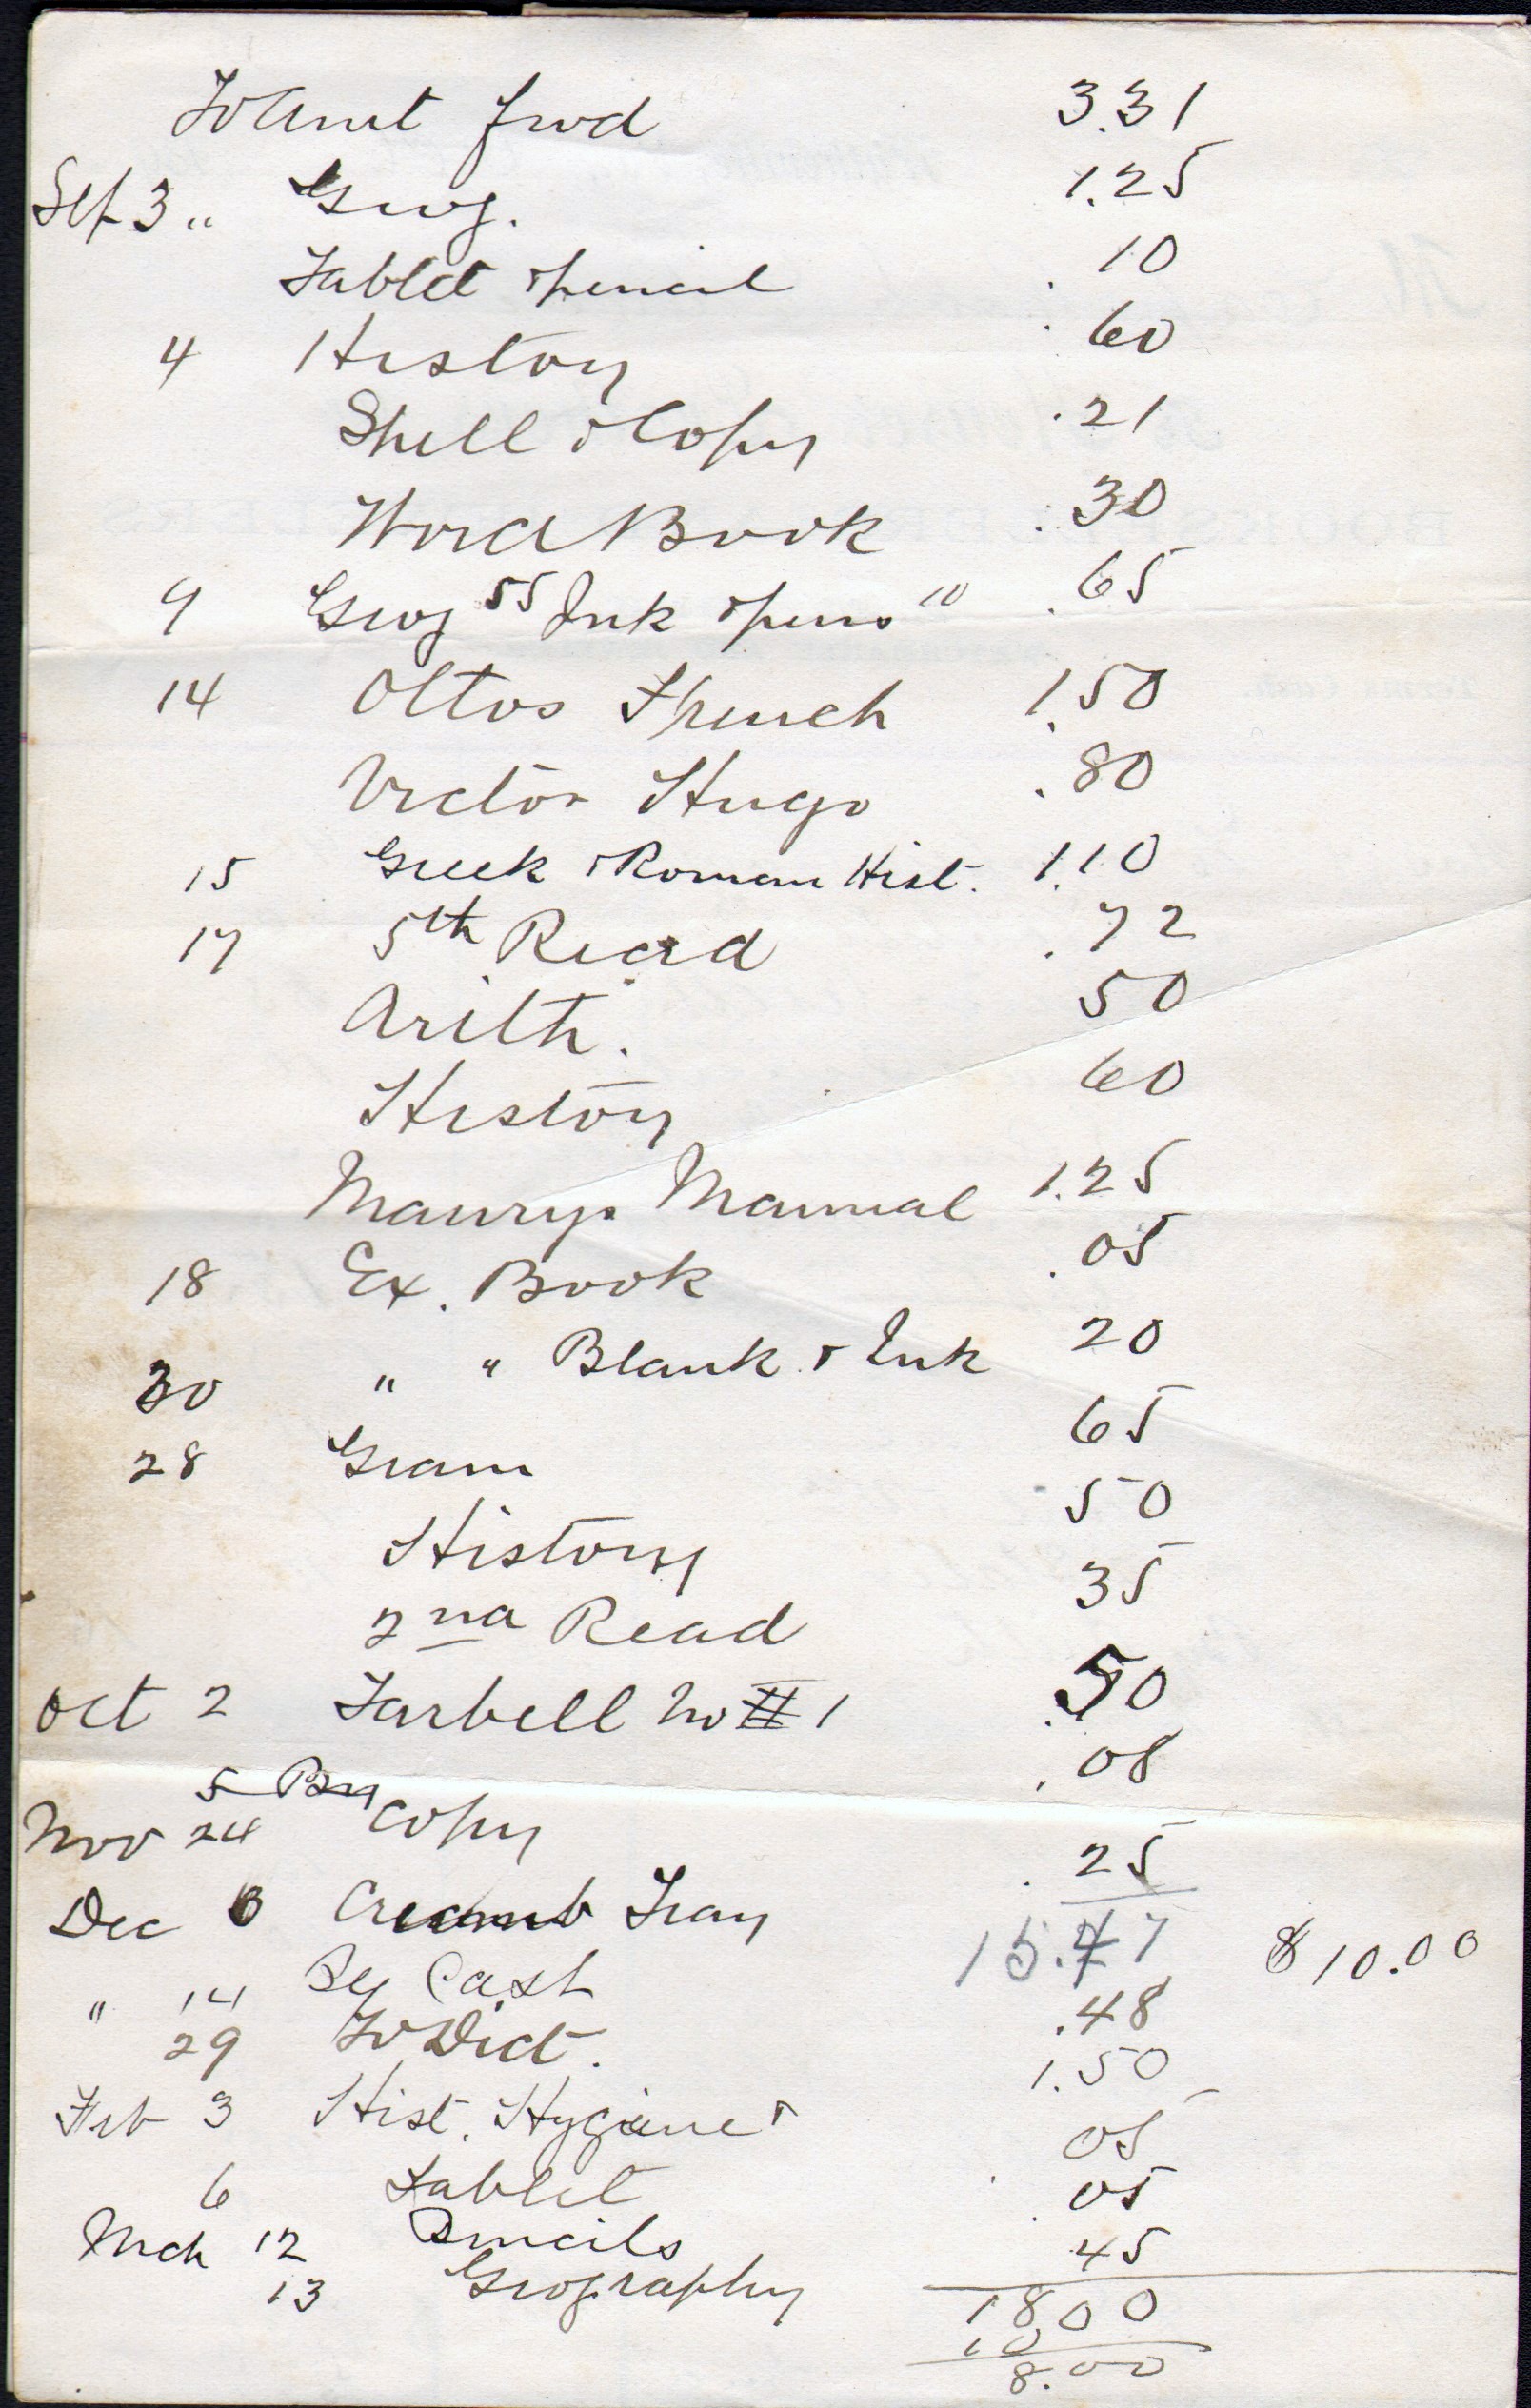 To Amt fwd 3.31
Sep 3 " Geog. 1.25
Tablet & pencil .10
4 History .60
Shell & Copy .21
Word Book .30
9 Geog 55 Ink & pens 10 .65
14 Ottos French 1.50
Victor Hugo .80
15 Greek & Roman Hist. 1.10
17 5th Read .72
Arith. 50
History 60
Maurys Manual 1.25
18 Ex. Book .05
30 " " Blank & Ink 20
28 Gram 65
History 50
2nd Read 35
Oct 2 Tarbell No # 1 .50
5 By
Nov 24 Copy .08
Dec 6 Crumb Tray .25
" 14 By Cash 15.47 $10.00
29 To Dict. .48
Feb 3 Hist. Hygiene & 1.50
6 Tablet 05
Mch 12 Pencils .05
13 Geography 45
18 00
10
8.00